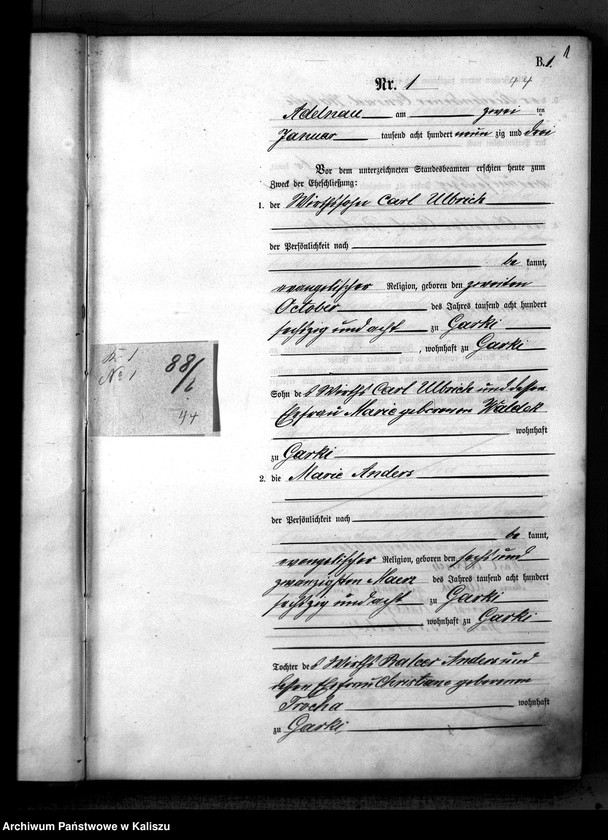 B.1.
1
Nr. 1
44
Adelnau am zwei ten
Januar tausend acht hundert neun zig und drei
Vor dem unterzeichneten Standesbeamten erschien heute zum
Zweck der Eheschließung:
1. der Wirthssohn Carl Ulbrich
der Persönlichkeit nach
be kannt,
evangelischer Religion, geboren den zweiten
October des Jahres tausend acht hundert
sechzig und acht zu Garki
, wohnhaft zu Garki
Sohn des Wirths Carl Ulbrich und dessen
Ehefrau Marie geborenen Waldek
wohnhaft
zu Garki
2. die Marie Anders
der Persönlichkeit nach
be kannt,
evangelischer Religion, geboren den sechs und
zwanzigsten Maerz des Jahres tausend acht hundert
sechzig und acht zu Garki
, wohnhaft zu Garki
Tochter des Wirths Balcer Anders und
dessen Ehefrau Christiane geborenen
Trocha wohnhaft
zu Garki
1
No 1
88/6
44
Archiwum Państwowe w Kaliszu